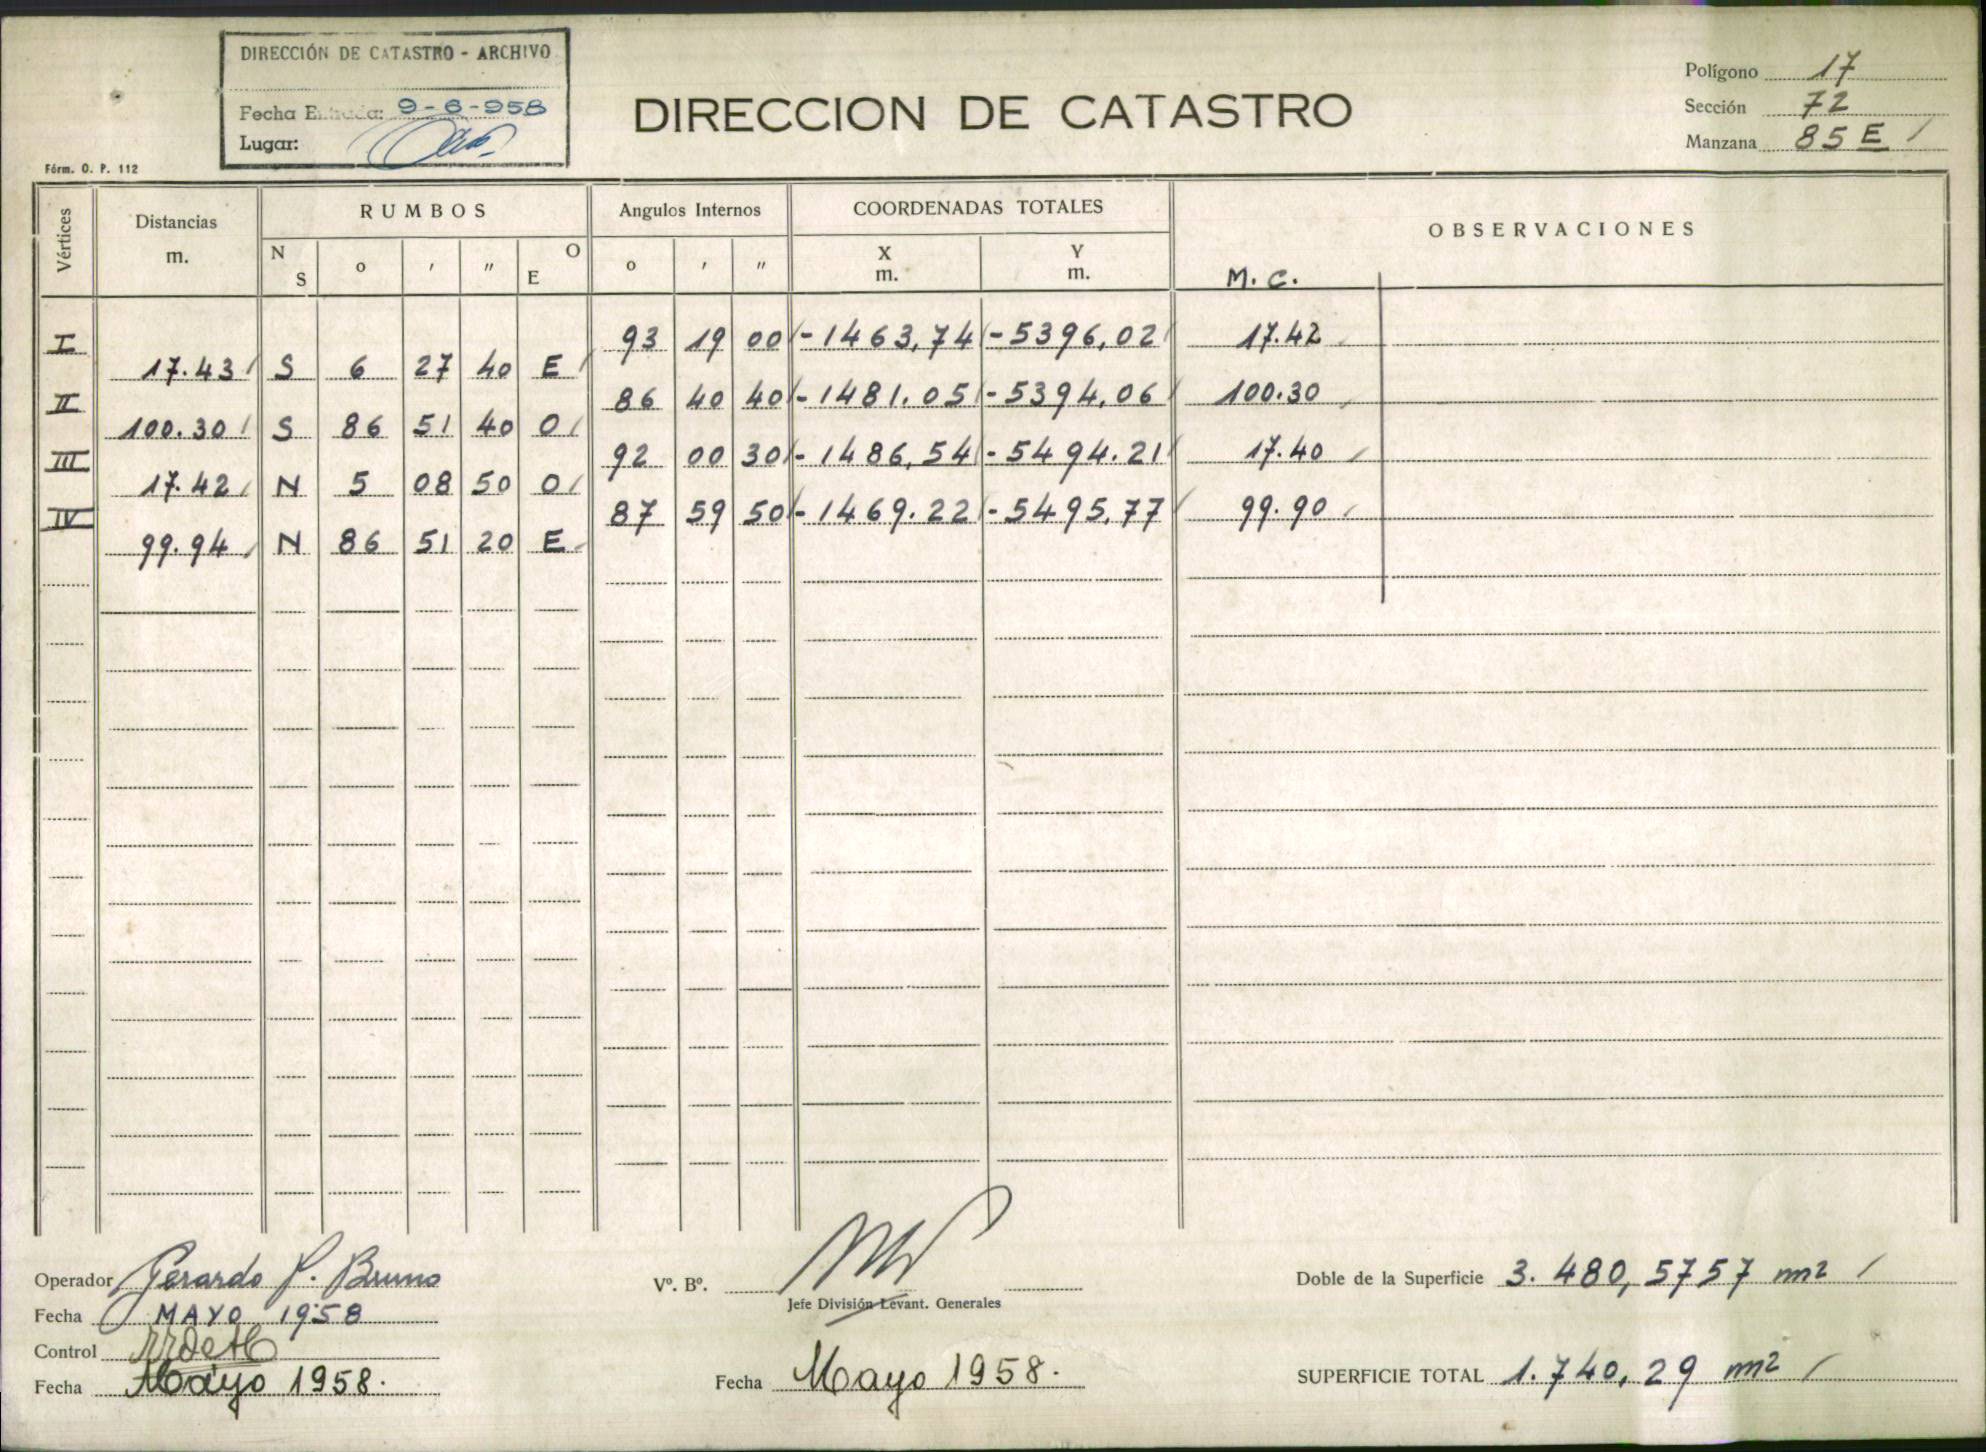 DIRECCIÓN DE CATASTRO - ARCHIVO
Fecha Entrada: 9-6-958
Lugar:
Fórm. O. P. 112
DIRECCION DE CATASTRO
Polígono 17
Sección 72
Manzana 85 E
Vértices Distancias m. RUMBOS Angulos Internos COORDENADAS TOTALES OBSERVACIONES
N S o ′ ″ O E o ′ ″ X m. Y m. M. C.
I 93 19 00 -1463,74 -5396,02 17.42
17.43 S 6 27 40 E
II 86 40 40 -1481.05 -5394,06 100.30
100.30 S 86 51 40 O
III 92 00 30 -1486,54 -5494.21 17.40
17.42 N 5 08 50 O
IV 87 59 50 -1469.22 -5495,77 99.90
99.94 N 86 51 20 E
Operador Gerardo P. Bruno
Fecha MAYO 1958
Control
Fecha Mayo 1958.
Vº. Bº.
Jefe División Levant. Generales
Fecha Mayo 1958.
Doble de la Superficie 3.480,5757 m2
SUPERFICIE TOTAL 1.740,29 m2